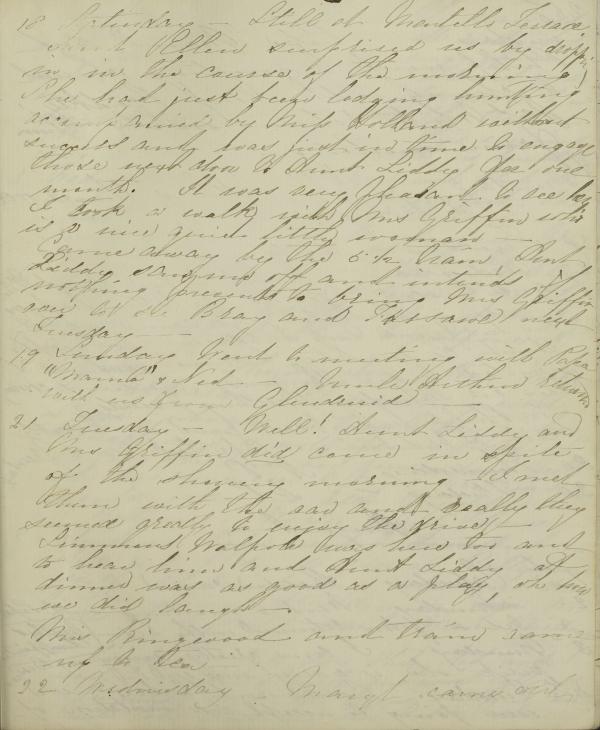 18 Saturday — Still at Montells Terrace
Aunt Ellen surprised us by dropp
in in the course of the morning
She had just been lodging hunting
accompanied by Miss Holland without
success and was just in time to engage
those next door to Aunt Liddy for one
month. It was very pleasant to see her
I took a walk with Mrs Griffin who
is a nice quiet little woman —
Came away by the 5 1/2 train Aunt
Liddy saw me off and intends if
nothing prevents to bring Mrs Griffin
over to see Bray and next
Tuesday —
19 Sunday Went to meeting with Papa
"Mama" & Ned — Uncle Arthur
with us from Glendruid —
21 Tuesday — Well! Aunt Liddy and
Mrs Griffin did come in spite
of the showery morning — I met
them with the car and really they
seemed greatly to enjoy the drive! —
Simmons Walpole was here too and
to hear him and Aunt Liddy at
dinner was as good as a play, oh how
we did laugh —
Mrs Ringwood and train came
up to tea
22 Wednesday — Mary came out